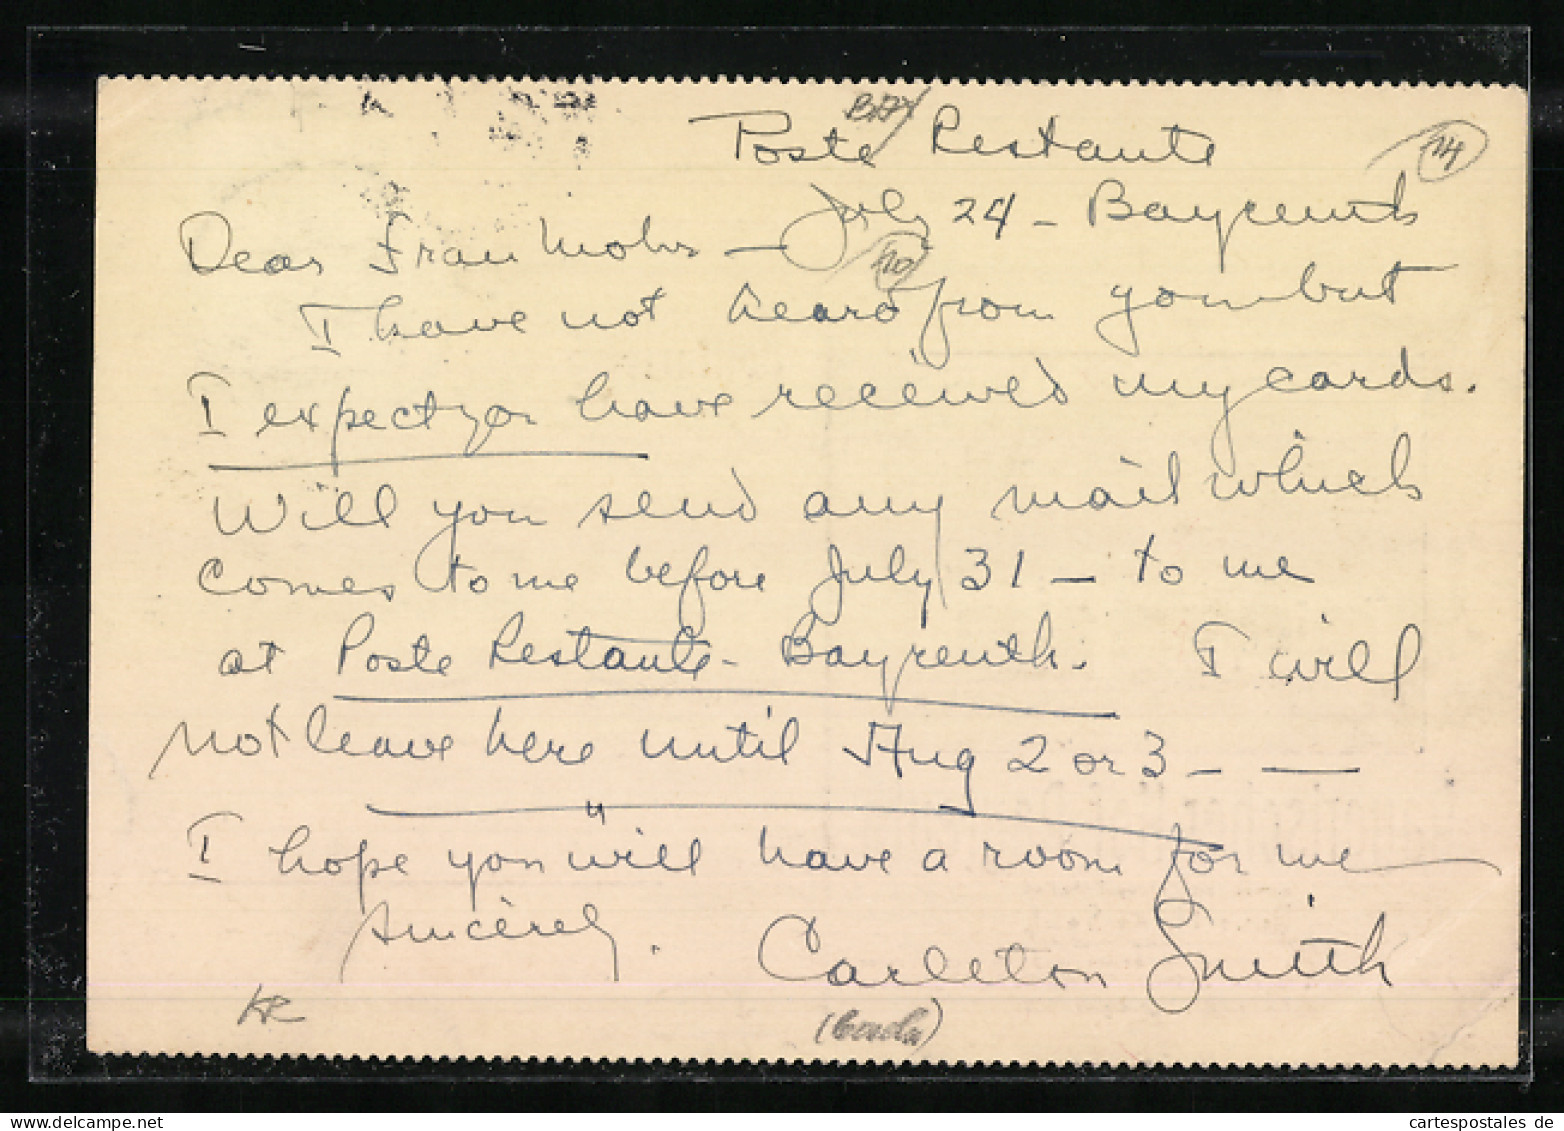 Poste Restante
July 24 - Bayreuth
Dear Frau Mohr -
I have not heard from you but
I expect you have received my cards.
Will you send any mail which
comes to me before July 31 - to me
at Poste Restante - Bayreuth. I will
not leave here until Aug 2 or 3 - -
I hope you will have a room for me
Sincerely.
Carleton Smith
14
10
BAY
KR
cartespostales.de